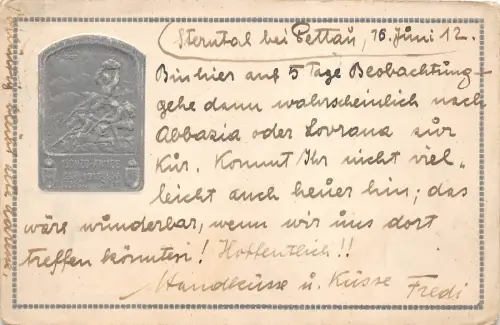 Sterntal bei Pettau, 16. Juni 12.
Bin hier auf 5 Tage Beobachtung-
gehe dann wahrscheinlich nach
Abbazia oder Lovrana zur
Kur. Kommt Ihr nicht viel-
leicht auch heuer hin; das
wäre wunderbar, wenn wir uns dort
treffen könnten! Hoffentlich!!
Handküsse u. Küsse Fredi